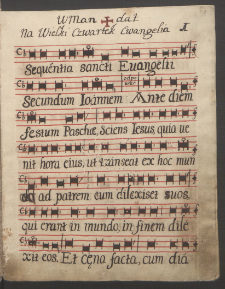 W Man dat
Na Wielki Czwartek Ewangelia I
Sequentia sancti Euangelii
Secundum Ioannem Ante diem
festum Paschæ, Sciens Iesus, quia ve
nit hora eius, ut transeat ex hoc mun
do ad patrem cum dilexiset suos
qui erant in mundo, in finem dile
xit eos. Et cęna facta, cum dia